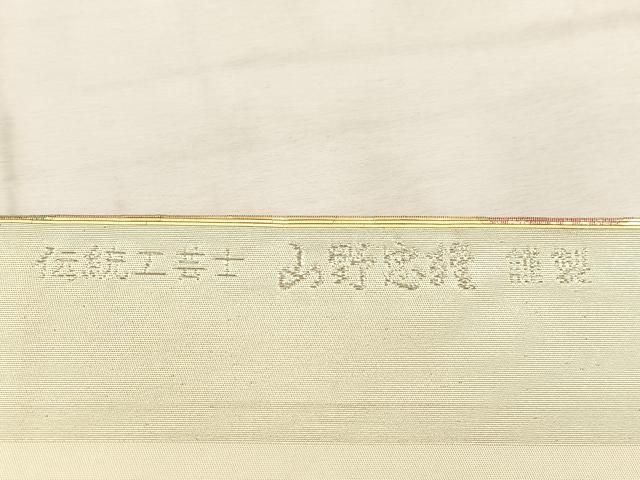 伝統工芸士 山野忠護 謹製